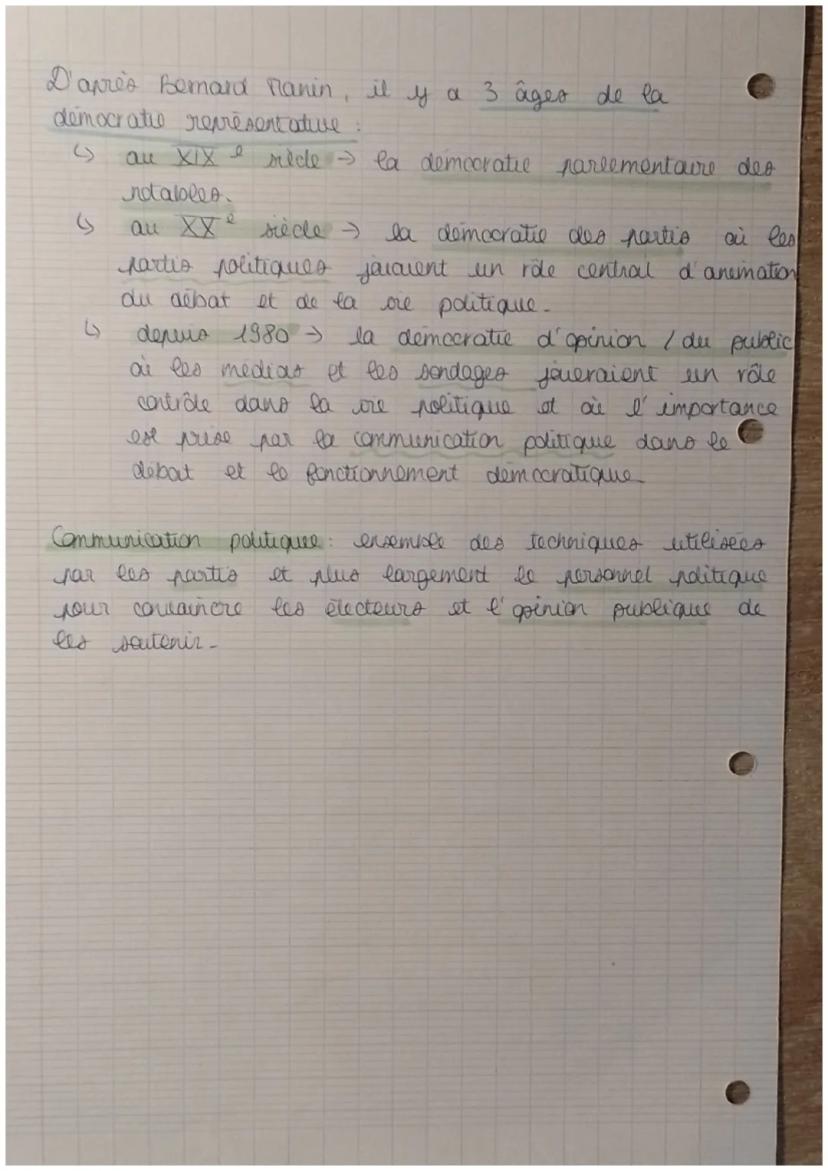 D'après Bernard Manin, il y a 3 âges de la
démocratie représentative :
↳ au XIXe siècle → la démocratie parlementaire des
notables.
↳ au XXe siècle → la démocratie des partis où les
partis politiques jouaient un rôle central d'animation
du débat et de la vie politique.
↳ depuis 1980 → la démocratie d'opinion / du public
où les médias et les sondages joueraient un rôle
contrôle dans la vie politique et où l'importance
est prise par la communication politique dans le
débat et le fonctionnement démocratique.
Communication politique : ensemble des techniques utilisées
par les partis et plus largement le personnel politique
pour convaincre les électeurs et l'opinion publique de
les soutenir.